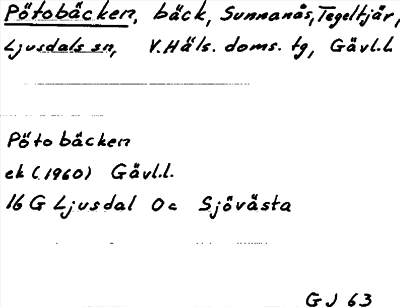 Pötobäcken, bäck, Sunnanås, Tegeltjär,
Ljusdals sn, V. Häls. doms. tg, Gävl.L
Pötobäcken
ek (1960) Gävl.l.
16 G Ljusdal 0c Sjövästa
GJ 63